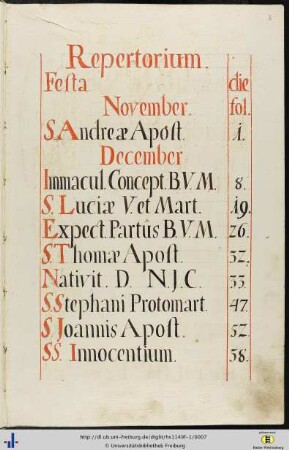 Repertorium.
Festa die
November. fol.
S. Andreæ Apost. 1.
December
Immacul. Concept. B.V.M. 8.
S. Luciæ V. et Mart. 19.
Expect. Partus B.V.M. 26.
S. Thomæ Apost. 32.
Nativit. D. N.J.C. 33.
S. Stephani Protomart. 47.
S. Joannis Apost. 52.
SS. Innocentium. 58.
http://dl.ub.uni-freiburg.de/diglit/hs1149f-1/0007
© Universitätsbibliothek Freiburg